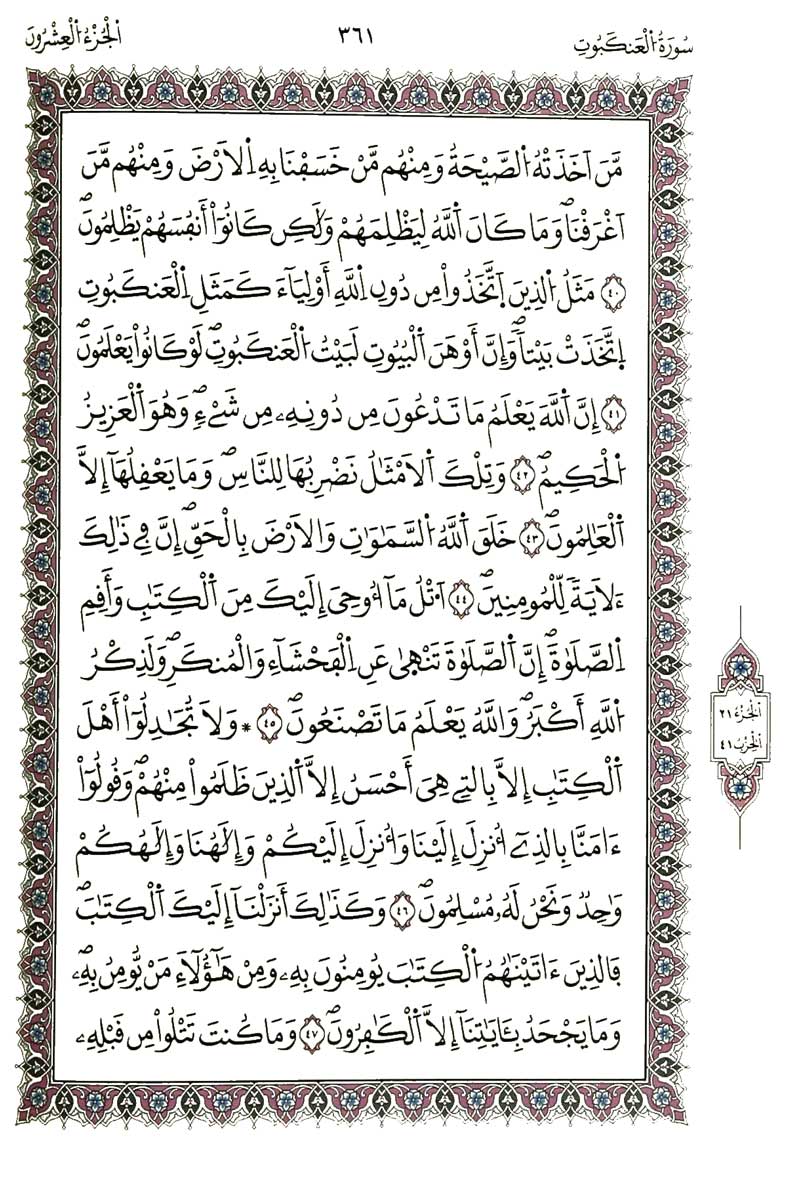 سُورَةُ الْعَنكَبُوتِ ٣٦١ الْجُزْءُ الْعِشْرُونَ
مَّنَ اَخَذَتْهُ الصَّيْحَةُ وَمِنْهُم مَّنْ خَسَفْنَا بِهِ اِلَارْضَ وَمِنْهُم مَّنَ
اَغْرَقْنَا وَمَا كَانَ اللَّهُ لِيَظْلِمَهُمْ وَلَٰكِن كَانُوٓاْ أَنفُسَهُمْ يَظْلِمُونَ
٤٠ مَثَلُ الذِينَ اَتَّخَذُواْ مِن دُونِ اِللَّهِ أَوْلِيَآءَ كَمَثَلِ اِلْعَنكَبُوتِ
اِتَّخَذَتْ بَيْتاً وَإِنَّ أَوْهَنَ اَلْبُيُوتِ لَبَيْتُ اُلْعَنكَبُوتِ لَوْ كَانُواْ يَعْلَمُونَ
٤١ إِنَّ اَللَّهَ يَعْلَمُ مَا تَدْعُونَ مِن دُونِهِۦ مِن شَےْءٖ وَهُوَ اَلْعَزِيزُ
اُلْحَكِيمُ ٤٢ وَتِلْكَ اَلَامْثَٰلُ نَضْرِبُهَا لِلنَّاسِ وَمَا يَعْقِلُهَآ إِلَّا
اَلْعَٰلِمُونَ ٤٣ خَلَقَ اَللَّهُ اُلسَّمَٰوَٰتِ وَالَارْضَ بِالْحَقِّ إِنَّ فِے ذَٰلِكَ
ءَلَايَةٗ لِّلْمُومِنِينَ ٤٤ اَتْلُ مَآ أُوحِىَ إِلَيْكَ مِنَ اَلْكِتَٰبِ وَأَقِمِ
اِلصَّلَوٰةَ إِنَّ اَلصَّلَوٰةَ تَنْهَىٰ عَنِ اِلْفَحْشَآءِ وَالْمُنكَرِ وَلَذِكْرُ
اُللَّهِ أَكْبَرُ وَاللَّهُ يَعْلَمُ مَا تَصْنَعُونَ ٤٥ * وَلَا تُجَٰدِلُوٓاْ أَهْلَ
اَلْكِتَٰبِ إِلَّا بِالتِے هِىَ أَحْسَنُ إِلَّا اَلذِينَ ظَلَمُواْ مِنْهُمْ وَقُولُوٓاْ
ءَامَنَّا بِالذِےٓ أُنزِلَ إِلَيْنَا وَأُنزِلَ إِلَيْكُمْ وَإِلَٰهُنَا وَإِلَٰهُكُمْ
وَٰحِدٌ وَنَحْنُ لَهُۥ مُسْلِمُونَ ٤٦ وَكَذَٰلِكَ أَنزَلْنَآ إِلَيْكَ اَلْكِتَٰبَ
فَالذِينَ ءَاتَيْنَٰهُمُ اُلْكِتَٰبَ يُومِنُونَ بِهِۦ وَمِنْ هَٰٓؤُلَآءِ مَنْ يُّومِنُ بِهِۦ
وَمَا يَجْحَدُ بِـَٔايَٰتِنَآ إِلَّا اَلْكَٰفِرُونَ ٤٧ وَمَا كُنتَ تَتْلُواْ مِن قَبْلِهِۦ
الجُزْءُ ٢١
الحِزْبُ ٤١